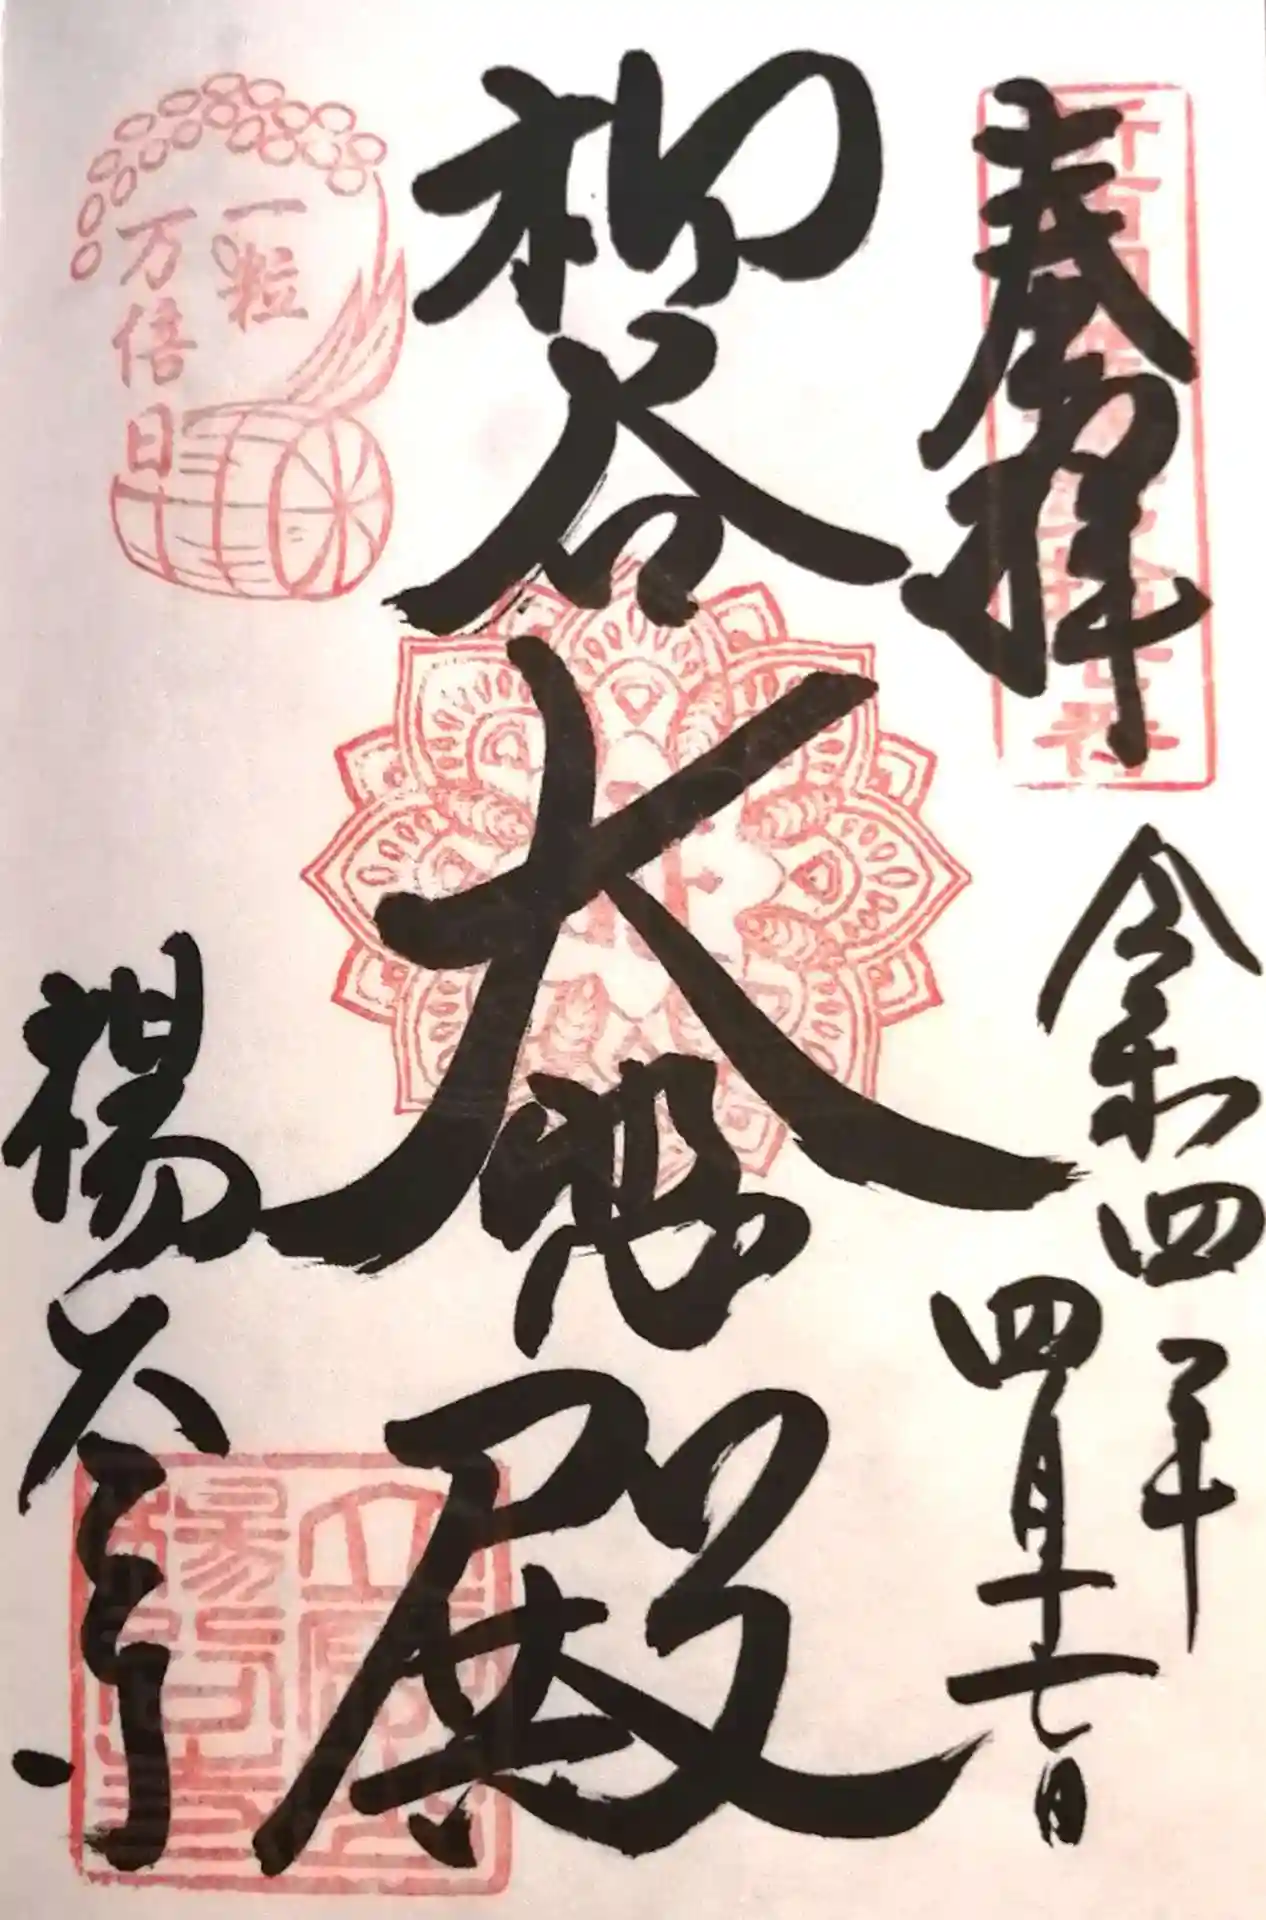 奉拝
令和四年
四月十七日
柳谷
大悲殿
楊谷寺
一粒
万倍
日
立願山
楊谷寺